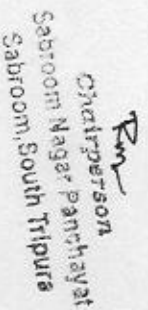 Chairperson
Sabroom Nagar Panchayat
Sabroom, South Tripura